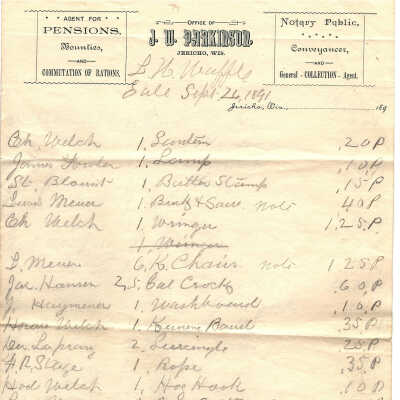 AGENT FOR
PENSIONS,
Bounties,
AND
COMMUTATION OF RATIONS.
OFFICE OF
J. W. PARKINSON,
JERICHO, WIS.
Notary Public,
Conveyancer,
AND
General COLLECTION Agent.
Jericho, Wis., 189
L H Waffle
Sept 26, 1891
Ch Welch 1, Lantern .20 P
James 1, Lamp .10 P
St. Blount 1, Butter Stamp .15 P
Lewis Meuer 1, Buck & Saw note .40 P
Ch Welch 1, Wringer 1,25 P
1 Wringer
L. Meuer 6, K. Chairs note 1 25 P
Jas. Hansen 2, 5, Gal Crocks .60 P
J. Haymener 1, Washboard .10 P
Horace Welch 1, Band .35 P
2, Surcingle .25 P
A. R. Stage 1, Rope .35 P
Hod Welch 1, Hog Hook .10 P